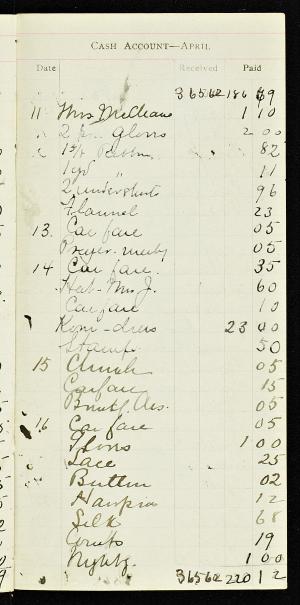 CASH ACCOUNT—APRIL.
Date Received Paid
365 62 186 69
11 Mrs 1 10
" 2 pr. Gloves 2 00
" Ribbon 82
1 yd " 11
2 undershirts 96
Flannel 23
13. Car fare 05
Prayer-meeting 05
14 Car fare. 35
Hat-Mrs J. 60
Carfare 10
dress 23 00
Stamps 50
15 Church 05
Carfare 15
05
16 Car fare 05
Gloves 1 00
Lace 25
Button 02
Hairpins 12
Silk 68
19
1 00
365 62 220 12